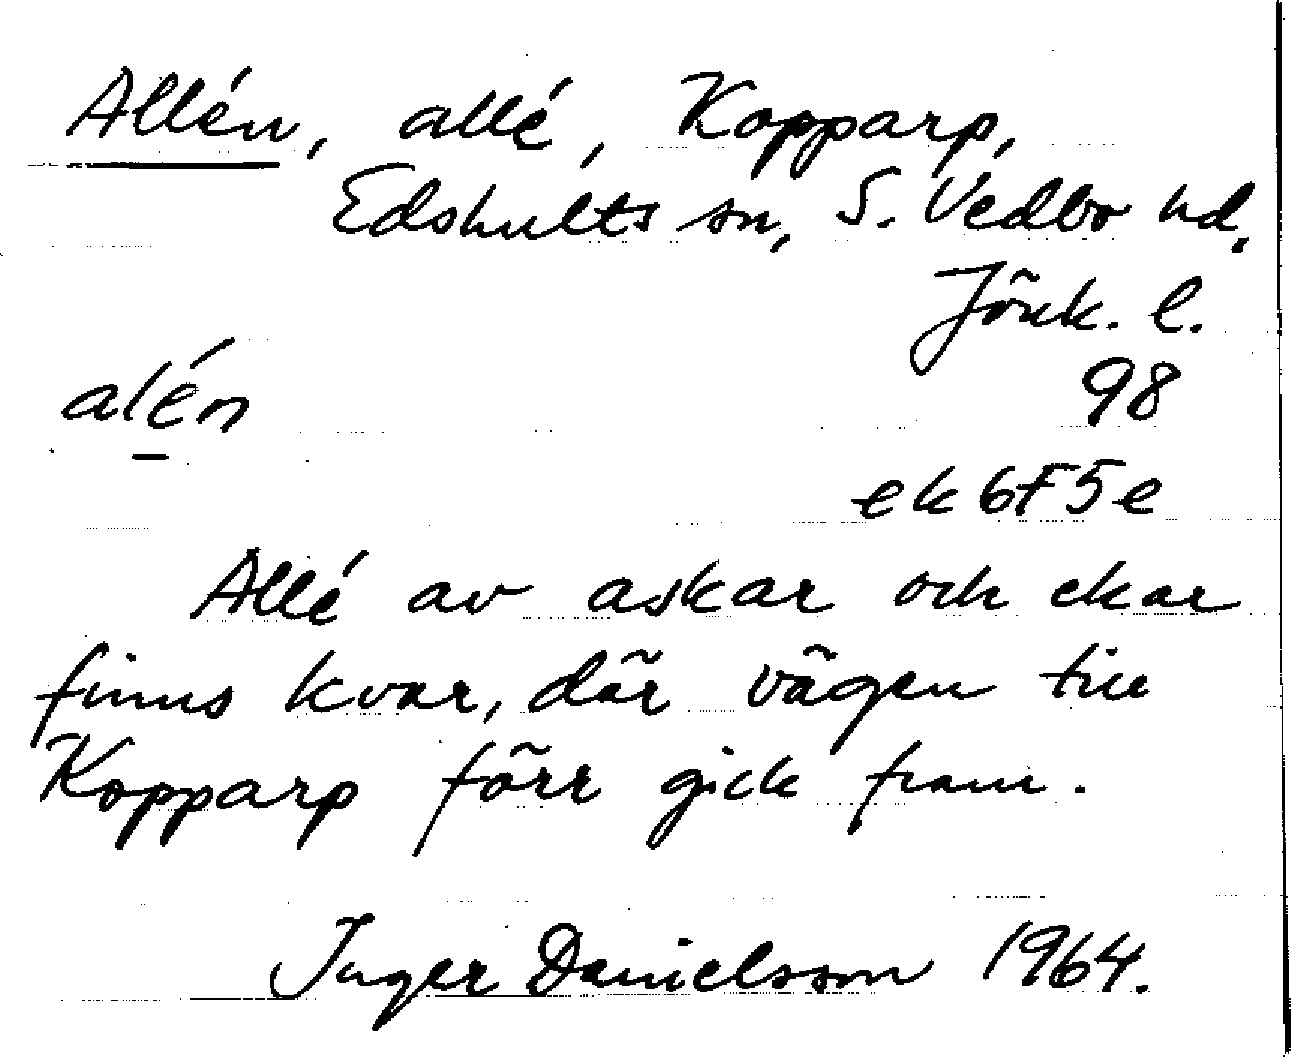 Allén, allé, Kopparp,
Edshults sn, S. Vedbo hd.
Jönk. l.
alén
98
ek 6F5e
Allé av askar och ekar
finns kvar, där vägen till
Kopparp förr gick fram.
Inger Danielsson 1964.